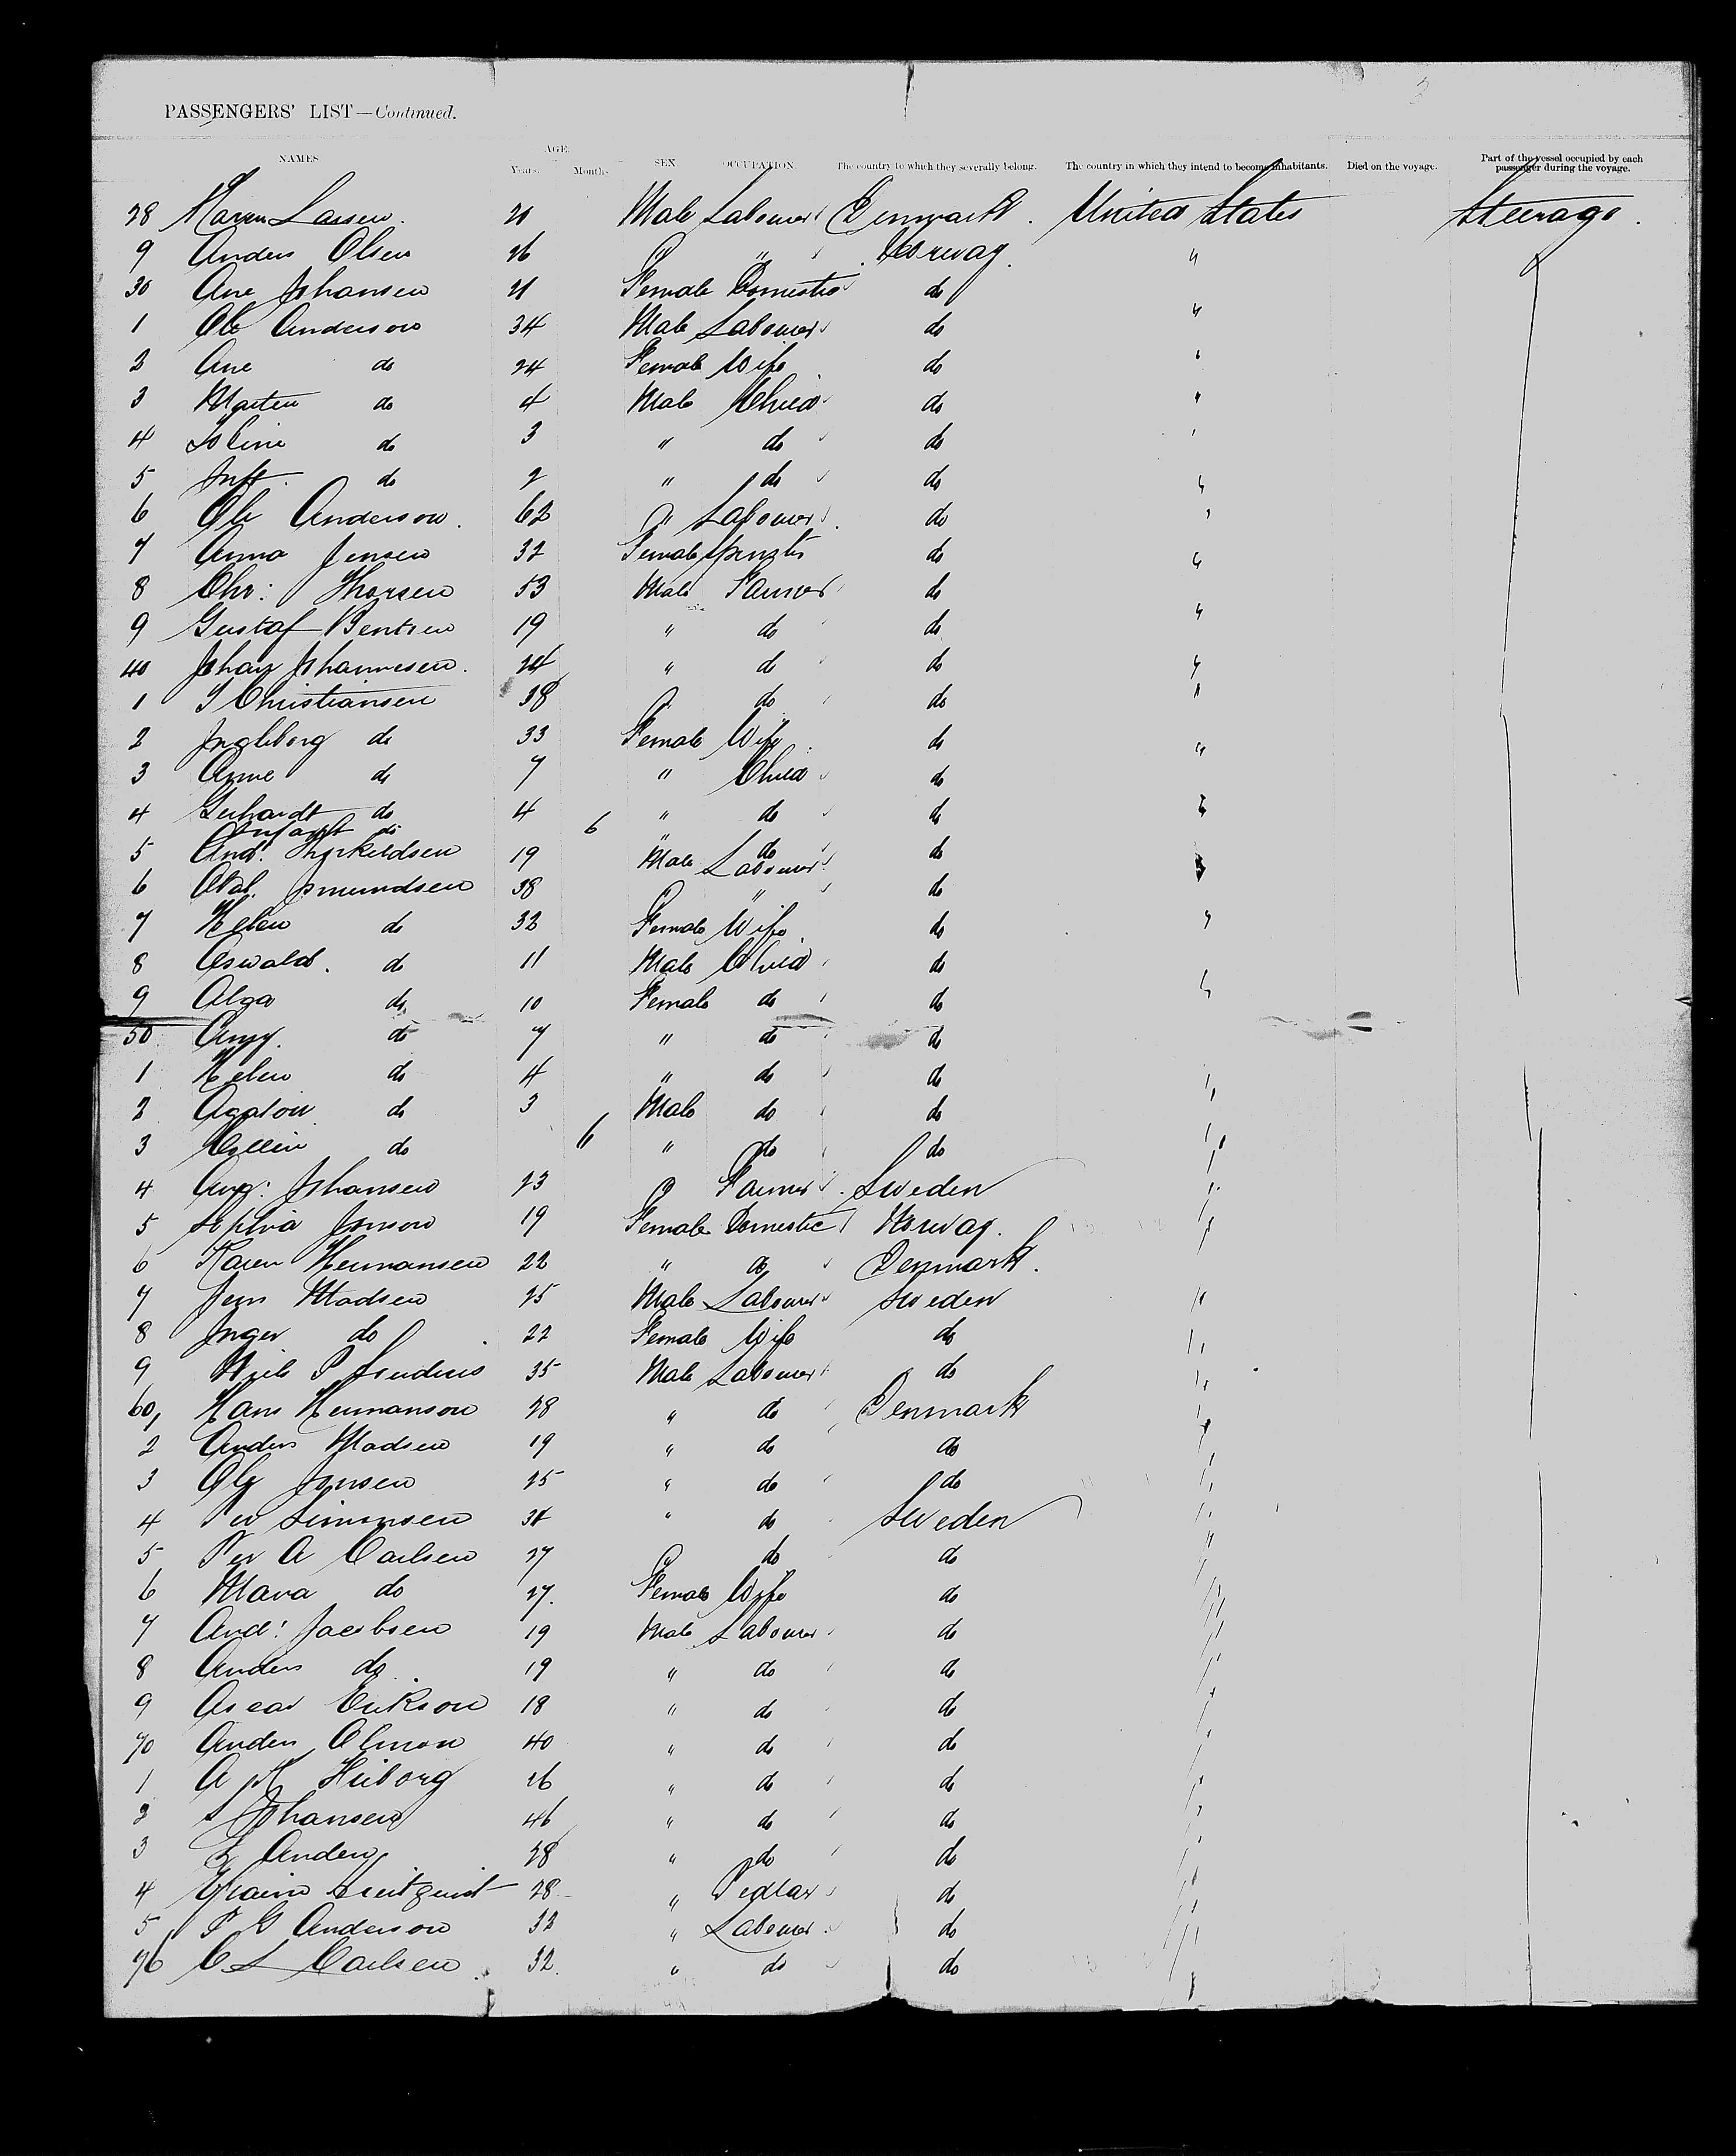 PASSENGERS' LIST—Continued.
NAMES AGE. Years. Months SEX OCCUPATION. The country to which they severally belong. The country in which they intend to become inhabitants. Died on the voyage. Part of the vessel occupied by each passenger during the voyage.
28 Maren Lassen. 21 Male Labourer Denmark. United States Steerage.
9 Anders Olsen 26 " Norway. "
30 Ane Johansen 21 Female Domestic do "
1 Ole Anderson 34 Male Labourer do "
2 Ane do 24 Female Wife do "
3 Marten do 4 Male Child do "
4 do 3 " do do "
5 Inft. do 2 " do do "
6 Ole Anderson. 62 " Labourer do "
7 Anna Jensen 32 Female Spinster do "
8 Chr: Thorsen 53 Male Farmer do "
9 Gustaf Bentsen 19 " do do "
40 Johan Johannesen. 24 " do do "
1 S Christiansen 38 " do do "
2 Ingleborg do 33 Female Wife do "
3 Anne do 7 " Child do "
4 Gerhardt do 4 " do do "
Infant do 6 " do
5 And: Thorkeldsen 19 Male Labourer do "
6 Osmundsen 38 " do
7 Helen do 32 Female Wife do "
8 Oswald. do 11 Male Child do
9 Olga do 10 Female do do "
50 Amy. do 7 " do do
1 Helen do 4 " do do "
2 Agaton do 3 Male do do
3 do 6 " do do "
4 Aug: Johansen 23 Farmer Sweden "
5 Jonson 19 Female Domestic Norway. "
6 Karen Hermansen 22 " do Denmark.
7 Jens Madsen 25 Male Labourer Sweden "
8 Inger do 22 Female Wife do "
9 Niels P 35 Male Labourer do "
60, Hans Hermanson 28 " do Denmark "
2 Anders Madsen 19 " do do "
3 Ole Jonsen 25 " do do "
4 Per Simonsen 34 " do Sweden "
5 Per A Carlsen 27 do do "
6 Mara do 27. Female Wife do "
7 And: Jacobsen 19 Male Labourer do "
8 Anders do 19 " do do "
9 Oscar Erikson 18 " do do "
70 Anders Olmon 40 " do do "
1 A 26 " do do "
2 Johansen 46 " do do "
3 28 " do do "
4 28 " Pedlar do "
5 P G Anderson 32 " Labourer do "
76 C L Carlsen 32. " do do "